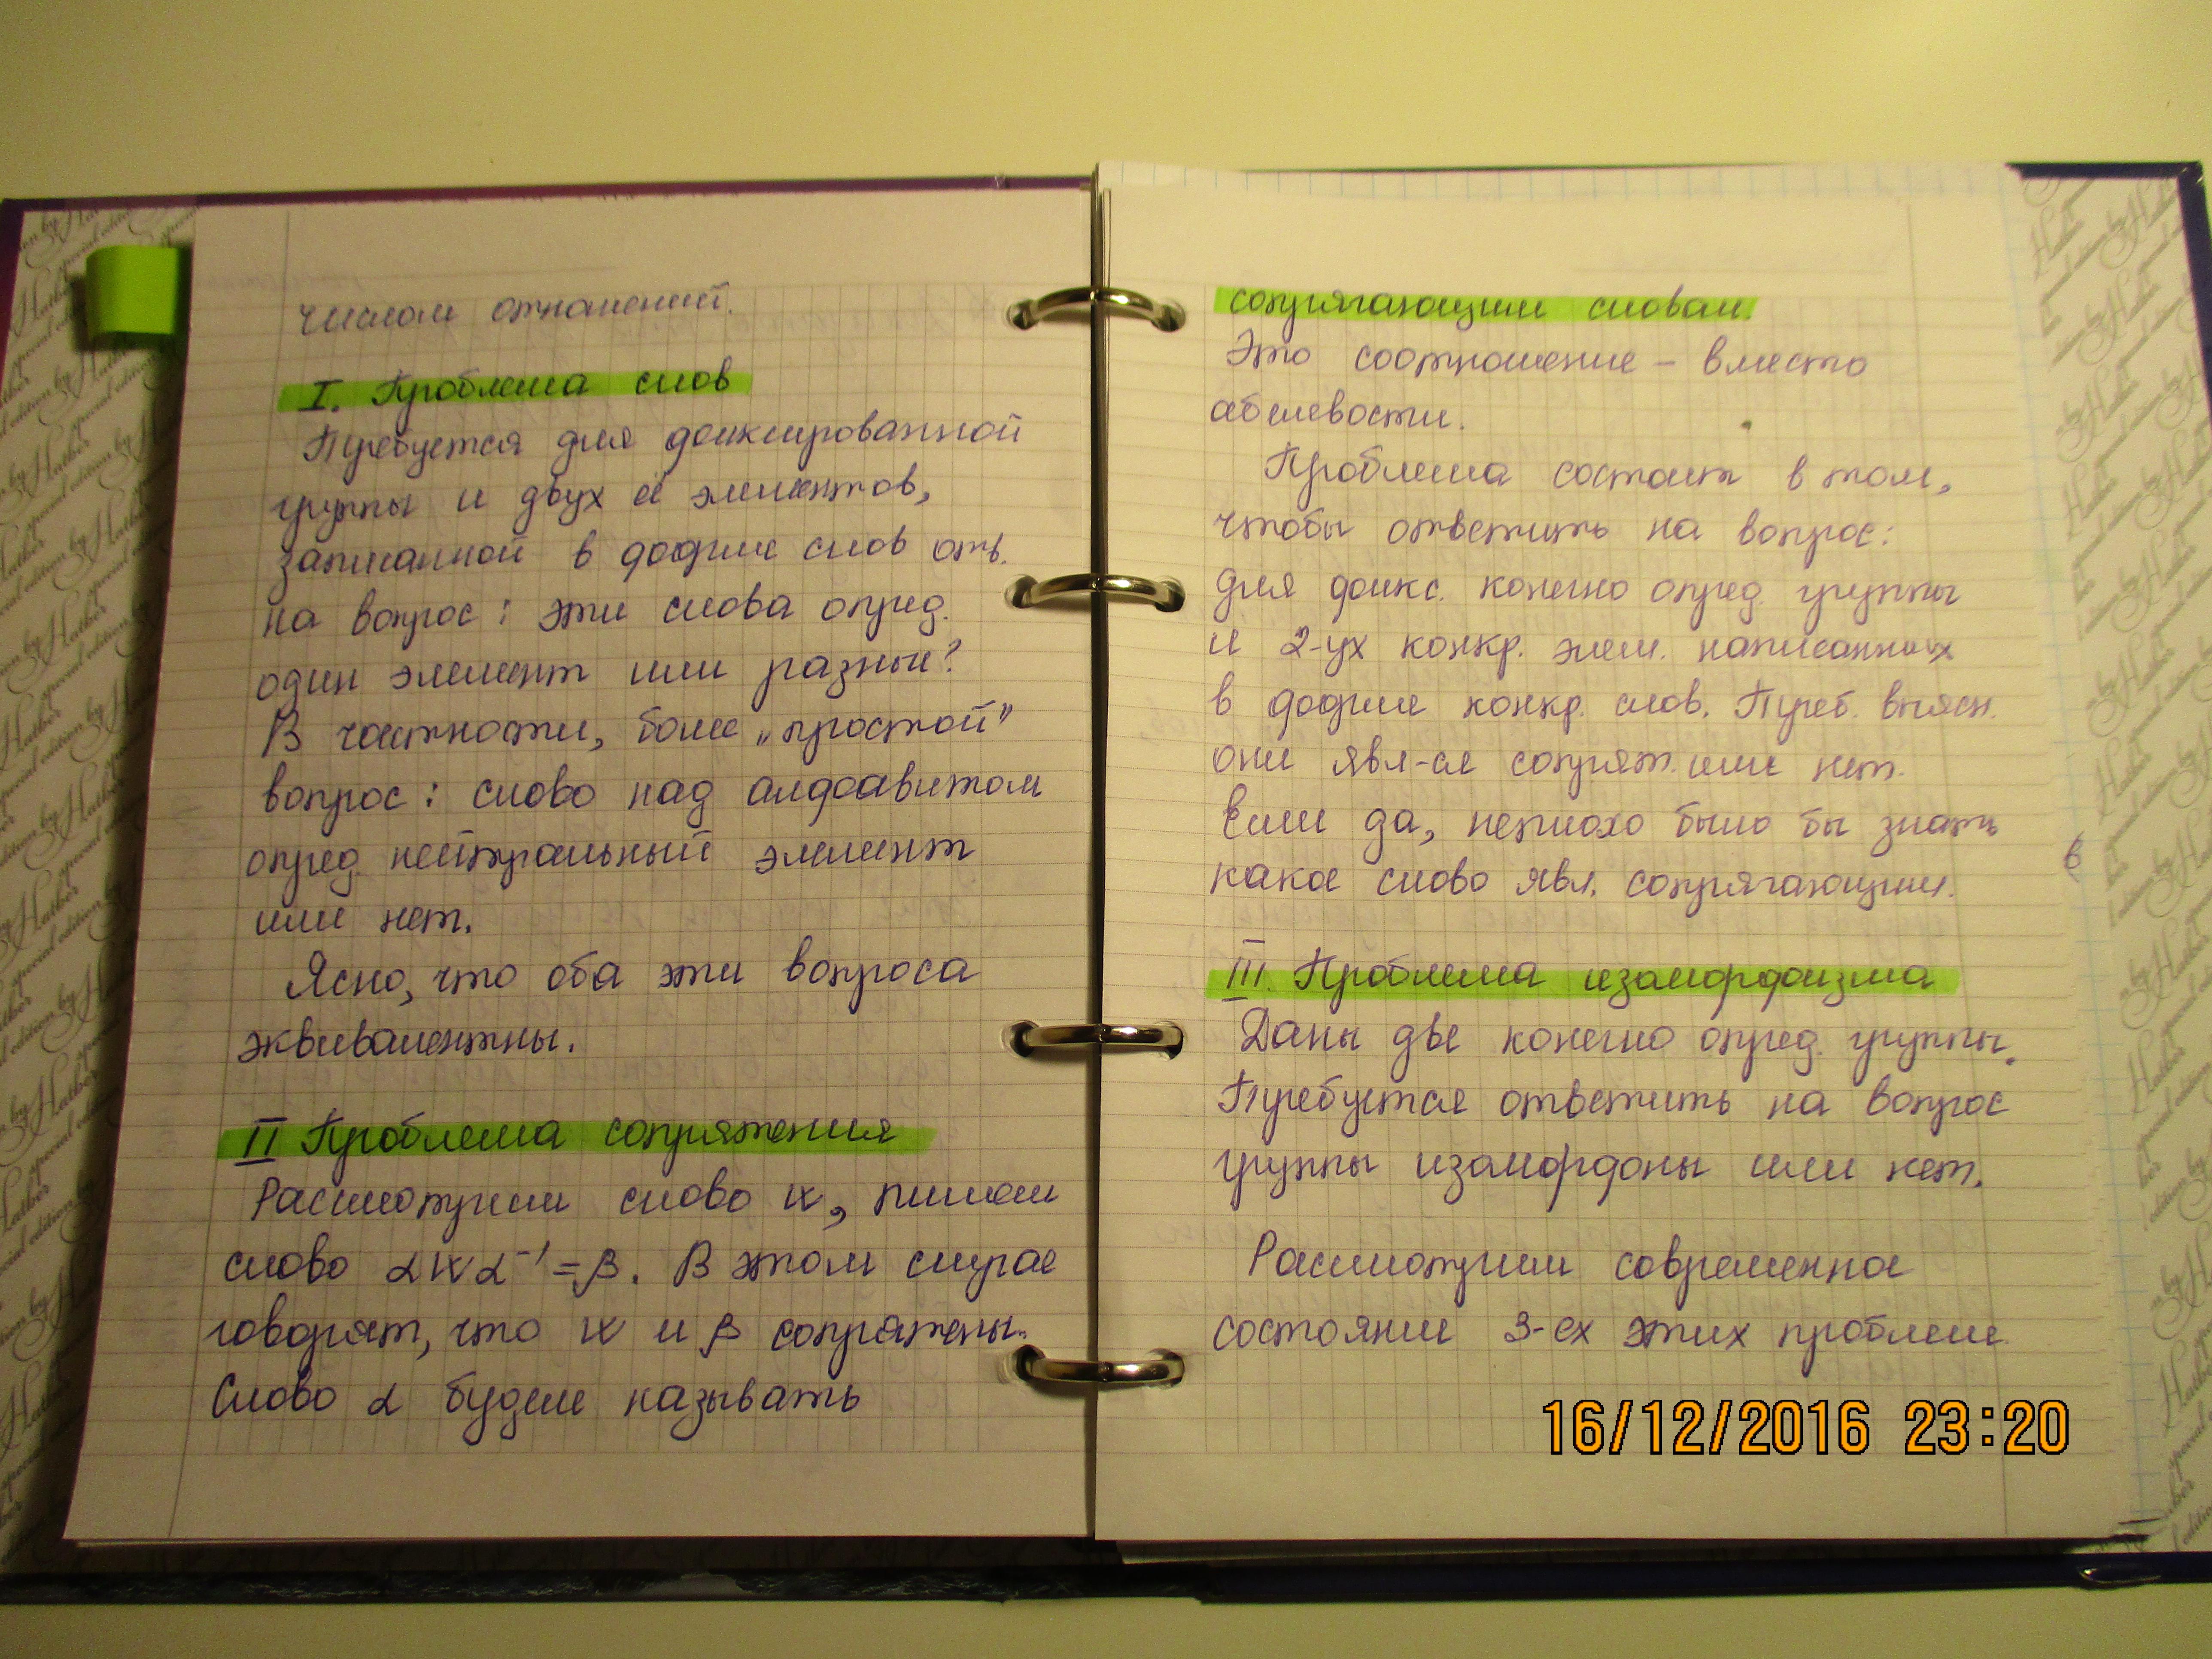 числом отношений.
I. Проблема слов
Требуется для фиксированной
группы и двух её элементов,
записанной в форме слов отв.
на вопрос: эти слова опред.
один элемент или разные?
В частности, более „простой"
вопрос: слово над алфавитом
опред. нейтральный элемент
или нет.
Ясно, что оба эти вопроса
эквивалентны.
II Проблема сопряжения
Рассмотрим слово к, пишем
слово αкα⁻¹=β. В этом случае
говорят, что к и β сопряжены.
Слово α будем называть
сопрягающим словам.
Это соотношение – вместо
абелевости.
Проблема состоит в том,
чтобы ответить на вопрос:
для фикс. конечно опред. группы
и 2-ух конкр. элем. написанных
в форме конкр. слов. Треб. выясн.
они явл-ся сопряж. или нет.
Если да, неплохо было бы знать
какое слово явл. сопрягающим.
III. Проблема изоморфизма
Даны две конечно опред. группы.
Требуется ответить на вопрос
группы изоморфны или нет.
Рассмотрим современное
состояние 3-ех этих проблем
16/12/2016 23:20